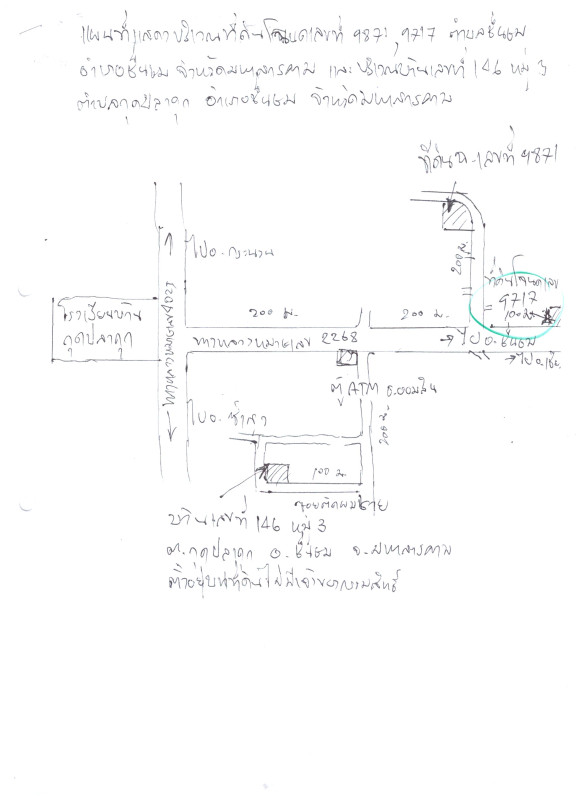 แผนที่แสดงบริเวณที่ดินโฉนดเลขที่ 9871, 9717 ตำบลชื่นชม
อำเภอชื่นชม จังหวัดมหาสารคาม และบริเวณบ้านเลขที่ 146 หมู่ 3
ตำบลกุดปลาดุก อำเภอชื่นชม จังหวัดมหาสารคาม
ที่ดิน ฉ. เลขที่ 9871
ไป อ.
200 ม.
ที่ดินโฉนดเลข
9717
100 ม.
โรงเรียนบ้าน
กุดปลาดุก
ทางหลวงหมายเลข
200 ม.
200 ม.
ทางหลวงหมายเลข 2268
→ ไป อ. ชื่นชม
ตู้ ATM ธ.ออมสิน
ไป อ.
200 ม.
100 ม.
บ้านเลขที่ 146 หมู่ 3
ต. กุดปลาดุก อ. ชื่นชม จ. มหาสารคาม
ตั้งอยู่บนที่ดินไม่มีเอกสารสิทธิ์